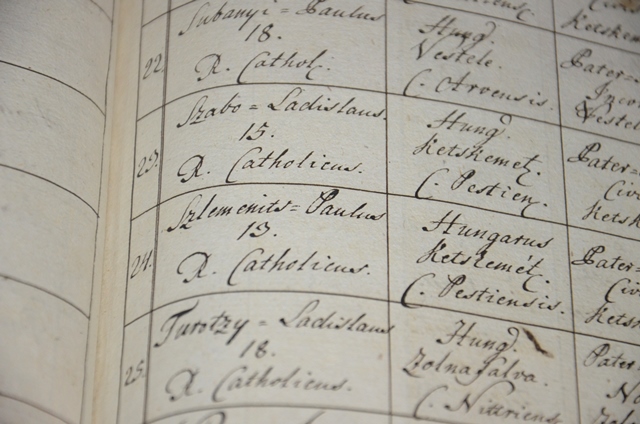 Subanyi = Paulus
18.
22.
R. Cathol.
Hung.
Vestele.
Pater =
Szabo = Ladislaus.
15.
23.
R. Catholicus.
Hung.
Ketskemet.
C. Pestien.
Pater =
Civ
Ketsk
Szlemenits = Paulus
13.
24.
R. Catholicus.
Hungarus
Ketskemét.
C. Pestiensis.
Pater
Civ
Ketsk
Turotzy = Ladislaus
18.
25.
R. Catholicus.
Hung.
Zolnafalva.
C. Nittriens
Pater